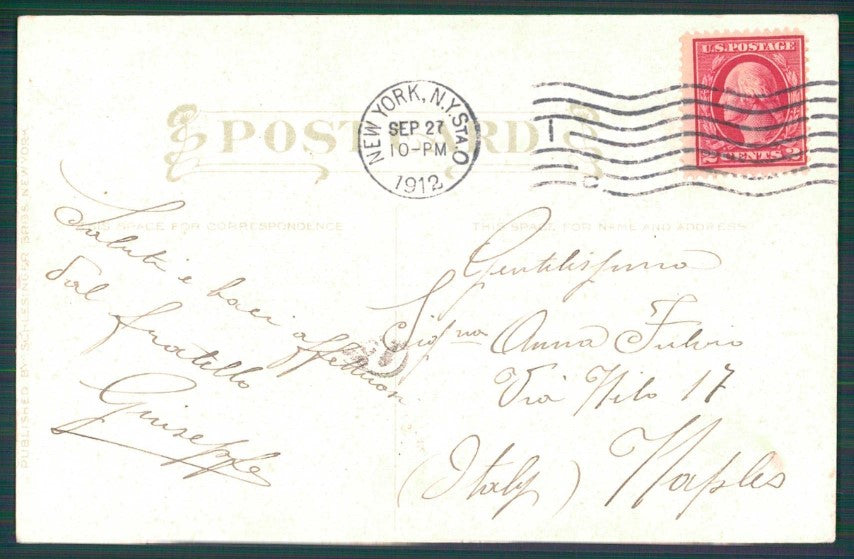 POST CARD
NEW YORK, N.Y. STA. O
SEP 27
10-PM
1912
1
U.S. POSTAGE
2 CENTS 2
THIS SPACE FOR CORRESPONDENCE
THIS SPACE FOR NAME AND ADDRESS
Saluti e baci affettuosi
dal fratello
Giuseppe
Gentilissima
Signa Anna Fulvio
Via Nilo 17
(Italy) Naples
PUBLISHED BY NEW YORK